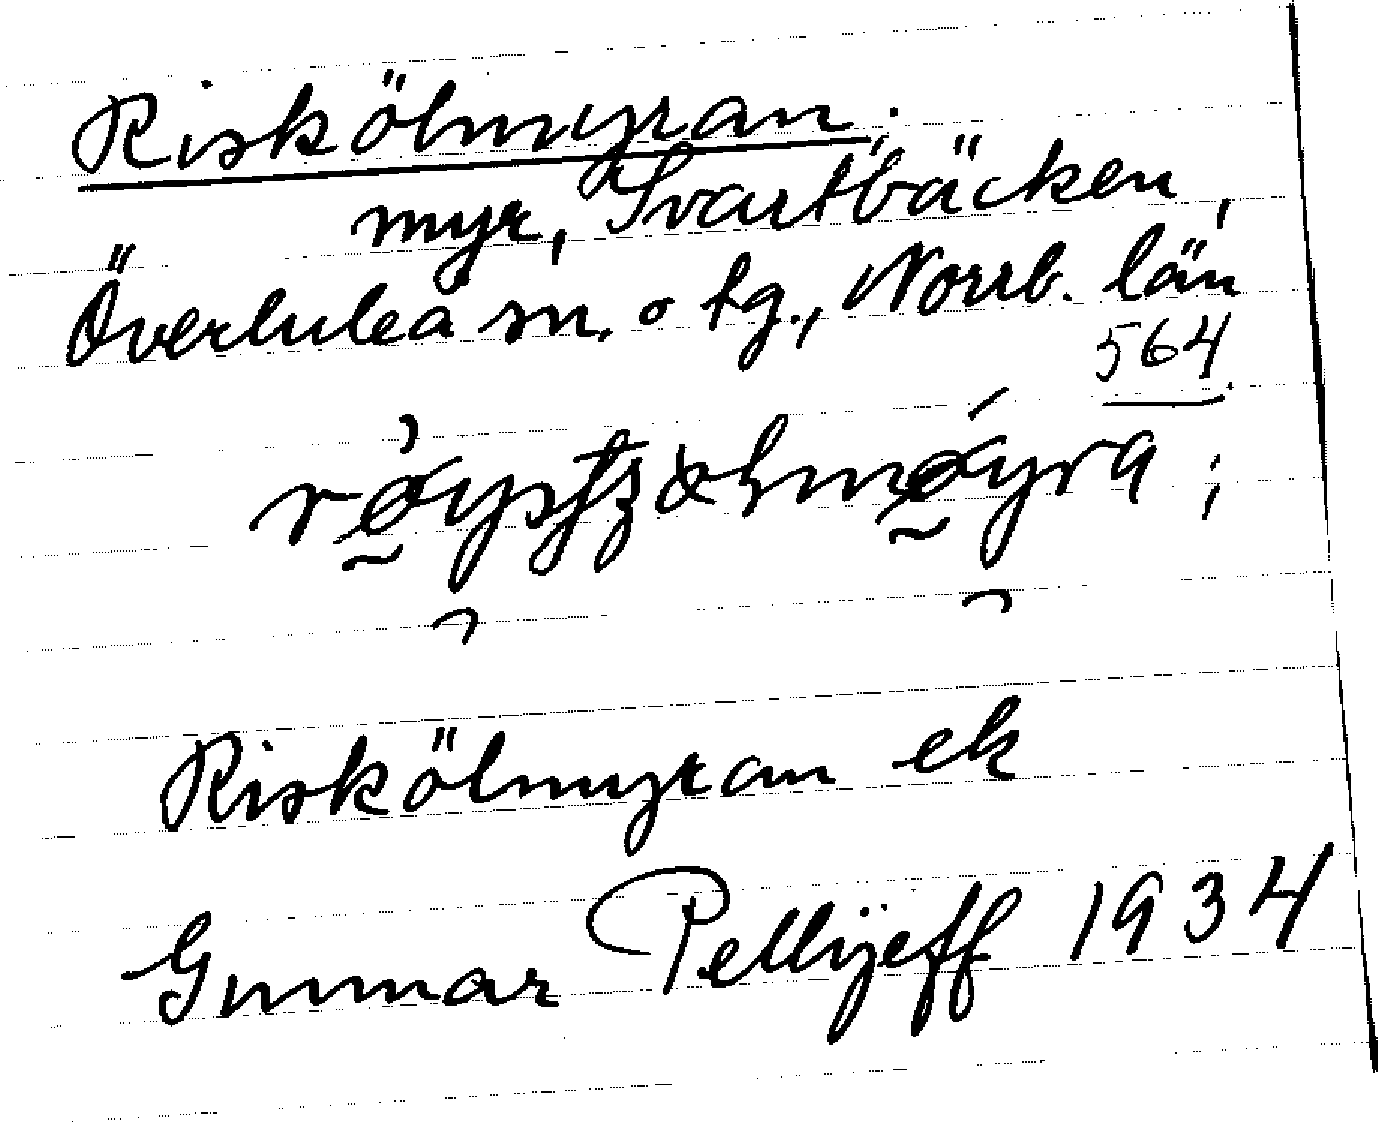 Riskölmyran.
myr, Svartbäcken,
Överluleå sn. o tg., Norrb. län
564
Riskölmyran ek
Gunnar Pellijeff 1934